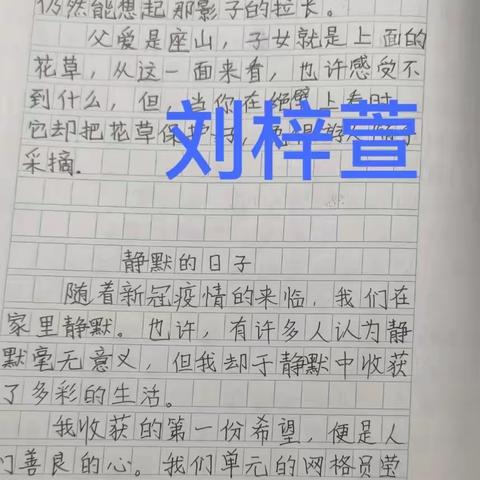 仍然能想起那影子的拉长。
父爱是座山，子女就是上面的
花草，从这一面来看，也许感受不
到什么，但，当你在绝壁上看时，
它却把花草保护
采摘.
刘梓萱
静默的日子
随着新冠疫情的来临，我们在
家里静默。也许，有许多人认为静
默毫无意义，但我却于静默中收获
了多彩的生活。
我收获的第一份希望，便是人
们善良的心。我们单元的网格员莹